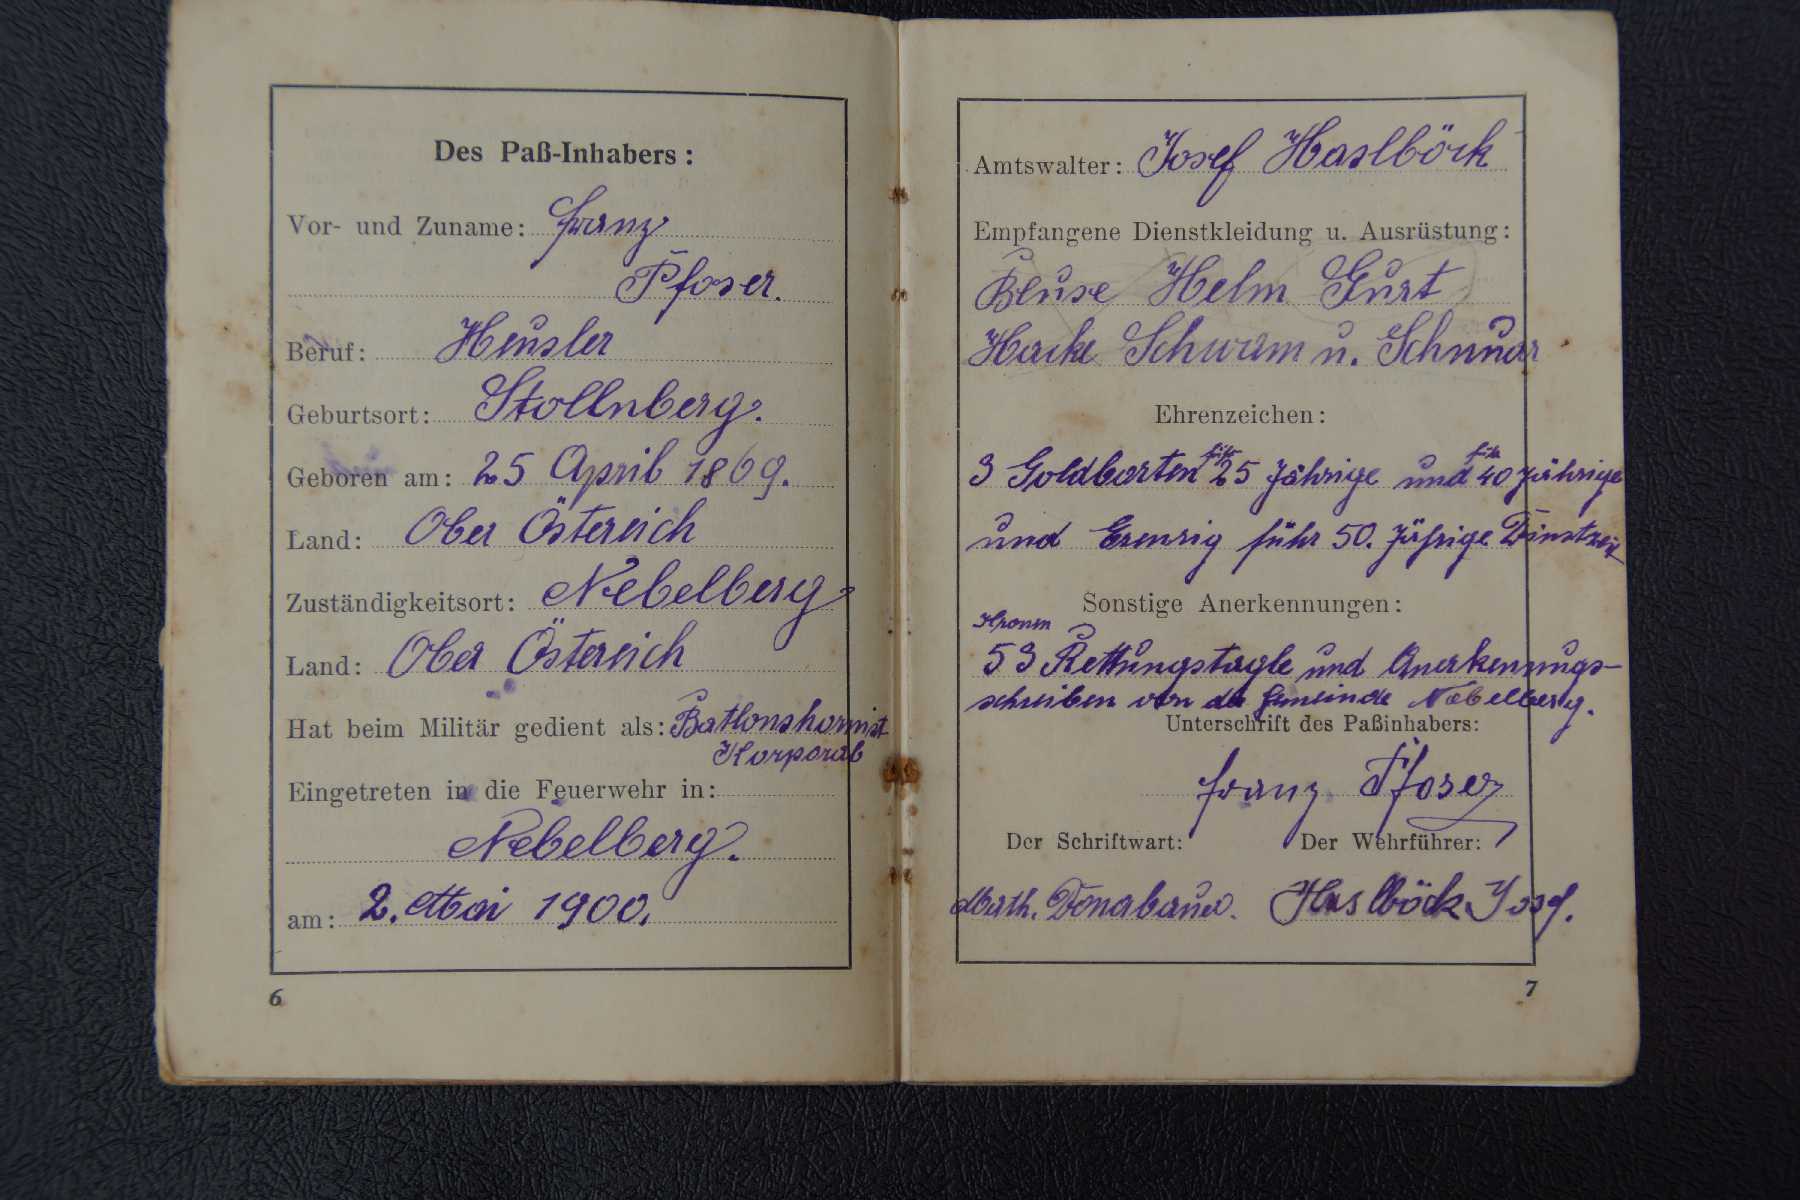 Des Paß-Inhabers:
Vor- und Zuname: Franz
Pfoser.
Beruf: Heusler
Geburtsort: Stollnberg.
Geboren am: 25 April 1869.
Land: Ober Östereich
Zuständigkeitsort: Nebelberg
Land: Ober Östereich
Hat beim Militär gedient als: Batlonshornist
Korporal
Eingetreten in die Feuerwehr in:
Nebelberg.
am: 2. Mai 1900.
6
Amtswalter: Josef Haslböck
Empfangene Dienstkleidung u. Ausrüstung:
Bluse Helm Gurt
Hacke Schwam u. Schnuar
Ehrenzeichen:
3 Goldborten für 25 Jährige und für 40 jährige
und führ 50. Jährige Dinstzeit
Sonstige Anerkennungen:
Kronen
53 Rettungstagle und Anerkennungs-
schreiben von der Gemeinde Nebelberg.
Unterschrift des Paßinhabers:
Franz Pfoser
Der Schriftwart: Der Wehrführer:
Math. Donabauer. Haslböck Josef.
7